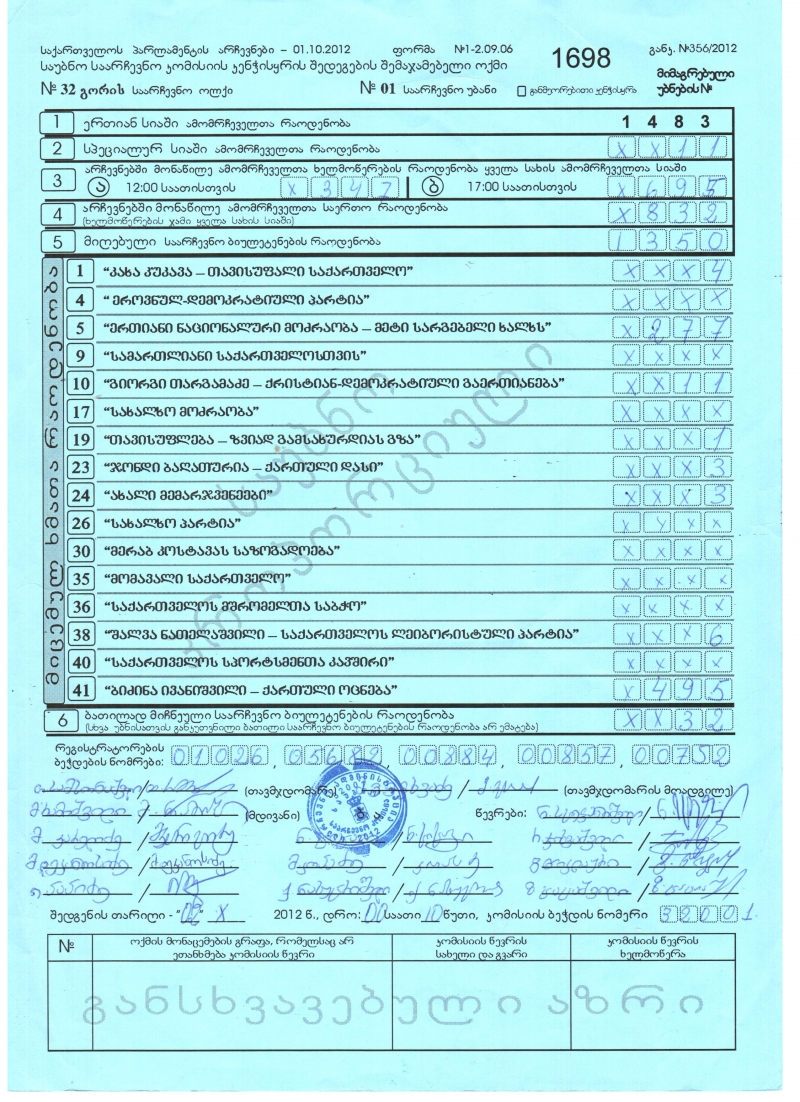 საქართველოს პარლამენტის არჩევნები – 01.10.2012 ფორმა №1-2.09.06 1698 განკ. №356/2012
საუბნო საარჩევნო კომისიის კენჭისყრის შედეგების შემაჯამებელი ოქმი მიმაგრებული
№ 32 გორის საარჩევნო ოლქი № 01 საარჩევნო უბანი განმეორებითი კენჭისყრა უბნების №
1 ერთიან სიაში ამომრჩეველთა რაოდენობა 1 4 8 3
2 სპეციალურ სიაში ამომრჩეველთა რაოდენობა x x 1 1
არჩევნებში მონაწილე ამომრჩეველთა ხელმოწერების რაოდენობა ყველა სახის ამომრჩეველთა სიაში
3 ა 12:00 საათისთვის x 3 4 7 ბ 17:00 საათისთვის x 6 9 5
4 არჩევნებში მონაწილე ამომრჩეველთა საერთო რაოდენობა x 8 3 2
(ხელმოწერების ჯამი ყველა სახის სიაში)
5 მიღებული საარჩევნო ბიულეტენების რაოდენობა 1 3 5 0
მიცემულ ხმათა რაოდენობა
1 “კახა კუკავა – თავისუფალი საქართველო” x x x 4
4 “ ეროვნულ-დემოკრატიული პარტია” x x x x
5 “ერთიანი ნაციონალური მოძრაობა – მეტი სარგებელი ხალხს” x 2 7 7
9 “სამართლიანი საქართველოსთვის” x x x x
10 “გიორგი თარგამაძე – ქრისტიან-დემოკრატიული გაერთიანება” x x 1 1
17 “სახალხო მოძრაობა” x x x x
19 “თავისუფლება – ზვიად გამსახურდიას გზა” x x x 1
23 “ჯონდი ბაღათურია – ქართული დასი” x x x 3
24 “ახალი მემარჯვენეები” x x x 3
26 “სახალხო პარტია” x x x x
30 “მერაბ კოსტავას საზოგადოება” x x x x
35 “მომავალი საქართველო” x x x x
36 “საქართველოს მშრომელთა საბჭო” x x x x
38 “შალვა ნათელაშვილი – საქართველოს ლეიბორისტული პარტია” x x x 6
40 “საქართველოს სპორტსმენთა კავშირი” x x x x
41 “ბიძინა ივანიშვილი – ქართული ოცნება” x 4 9 5
საუბნო
პროპორციული
6 ბათილად მიჩნეული საარჩევნო ბიულეტენების რაოდენობა x x 3 2
(სხვა უბნისათვის განკუთვნილი ბათილი საარჩევნო ბიულეტენების რაოდენობა არ ემატება)
რეგისტრატორების
ბეჭდების ნომრები: 01026, 05682, 00884, 00857, 00752
(თავმჯდომარე) / (თავმჯდომარის მოადგილე)
(მდივანი) წევრები:
შედგენის თარიღი - "02" X 2012 წ., დრო: 00 საათი 10 წუთი, კომისიის ბეჭდის ნომერი 32001
№ ოქმის მონაცემების გრაფა, რომელსაც არ ეთანხმება კომისიის წევრი კომისიის წევრის სახელი და გვარი კომისიის წევრის ხელმოწერა
განსხვავებული აზრი